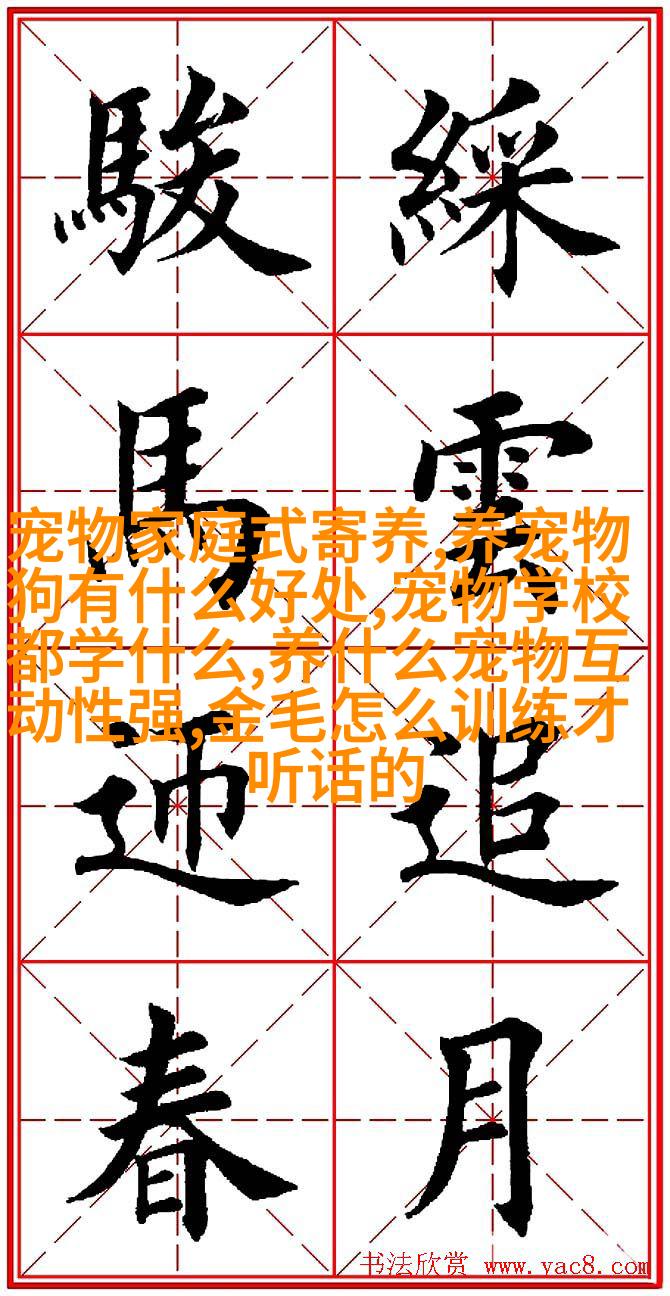 綵雲追月
駿馬迎春
宠物家庭式寄养,养宠物
狗有什么好处,宠物学校
都学什么,养什么宠物互
动性强,金毛怎么训练才
听话的
书法欣赏 www.yac8.com